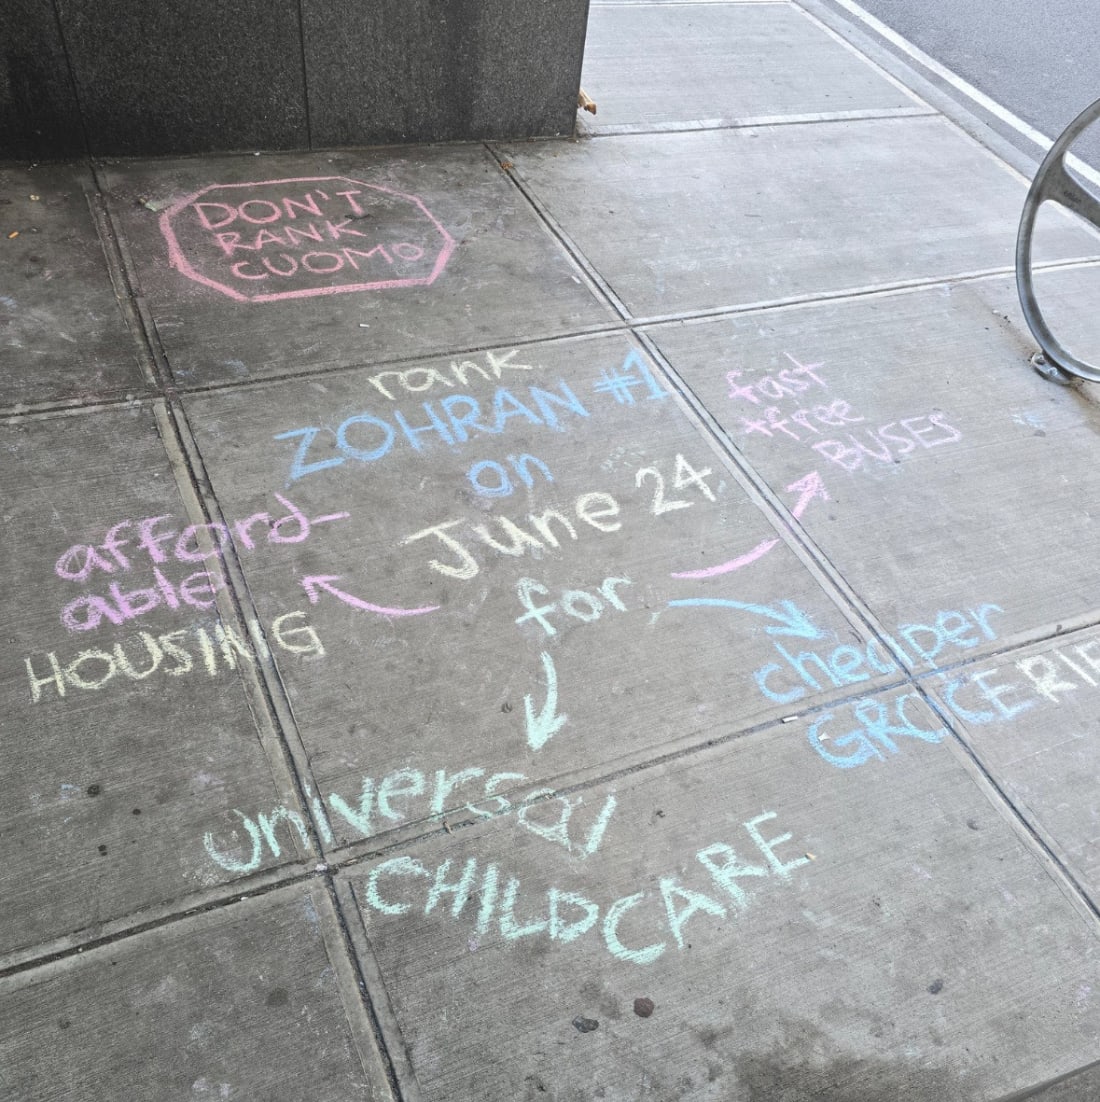 DON'T
RANK
CUOMO
rank
ZOHRAN #1
on
June 24
for
afford-
able
HOUSING
fast
+free
BUSES
cheaper
GROCERIE
universal
CHILDCARE